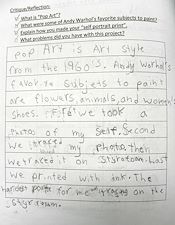 Critique/Reflection:
✓ What is "Pop Art"?
✓ What were some of Andy Warhol's favorite subjects to paint?
✓ Explain how you made your "self portrait print".
✓ What problems did you have with this project?
pop Art is Art style
from the 1960's. Andy Warhol's
favorite subjets to paint
are flowers, animals, and women's
shoes. First we took a
photos of my self, Second
We traced my photo, then
we traced it on Styrofoam. Last
we printed with ink. The
hardest for me traging on the
Styrofoam.